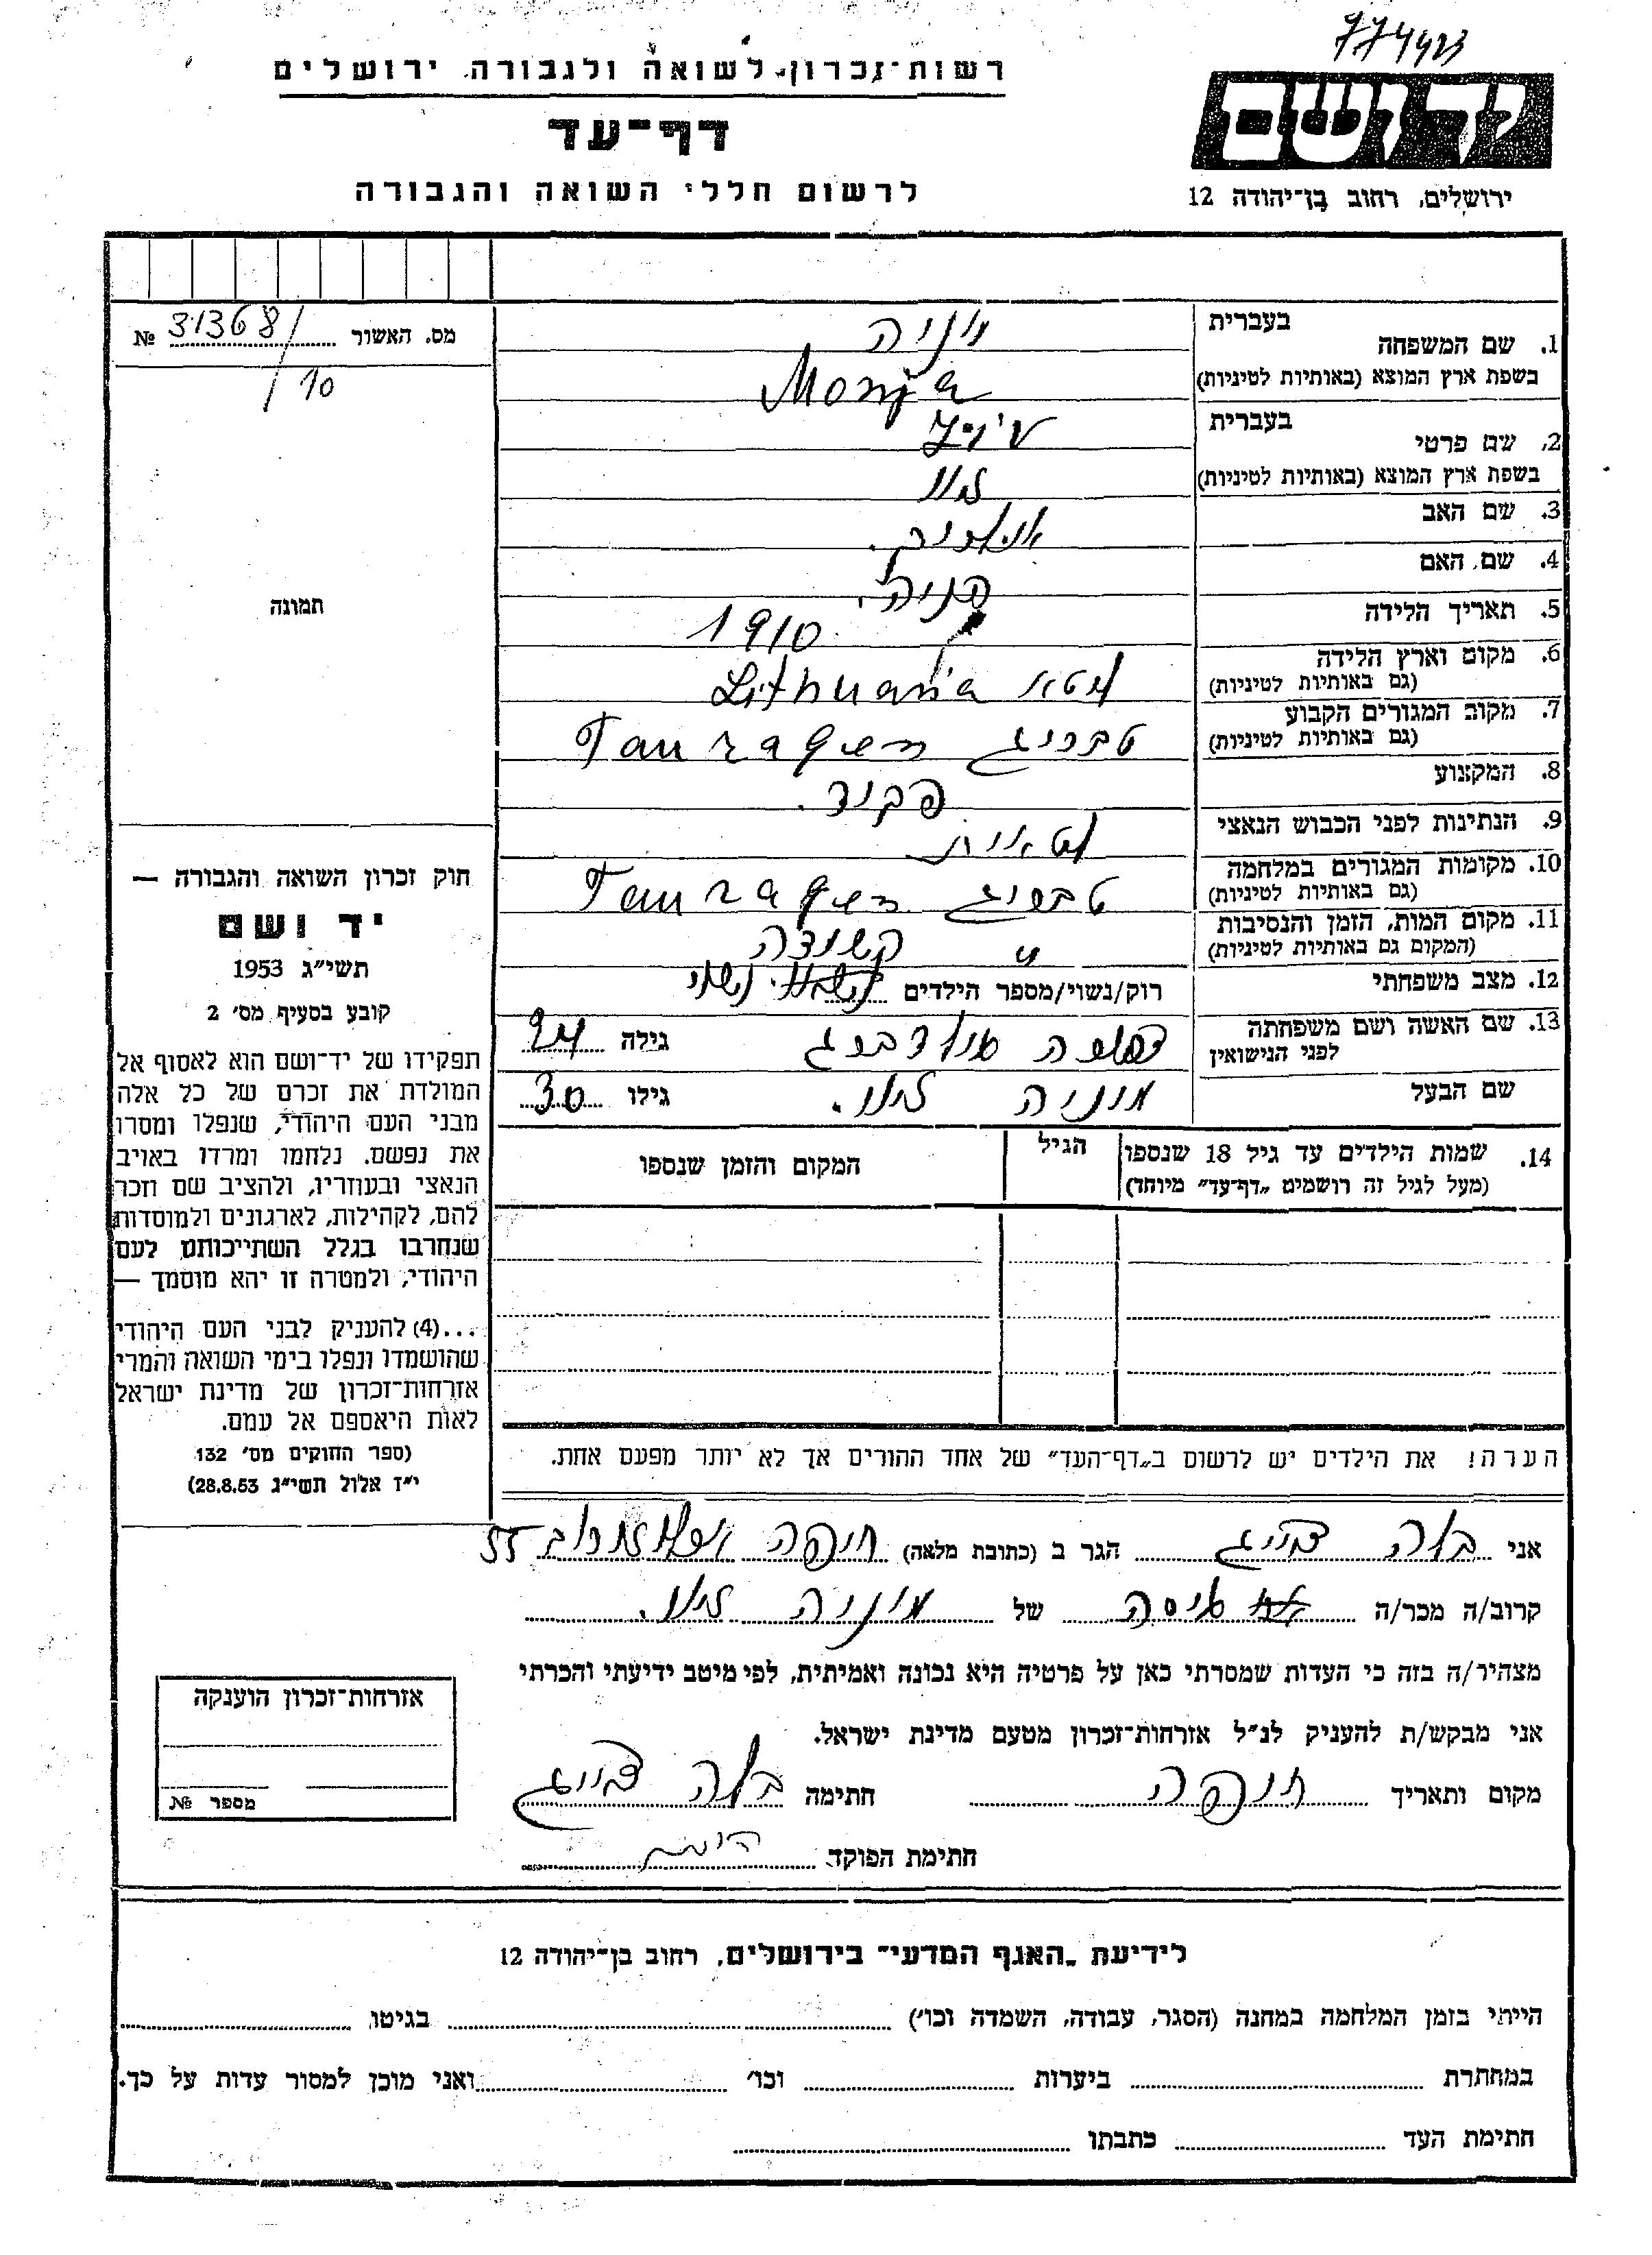 774423
יד ושם
ירושלים, רחוב בן־יהודה 12
רשות־זכרון לשואה ולגבורה, ירושלים
דף־עד
לרשום חללי השואה והגבורה
מס. האשור 31368 №
/10
תמונה
1. שם המשפחה בעברית מוניה
בשפת ארץ המוצא (באותיות לטיניות) Monja
2. שם פרטי בעברית
בשפת ארץ המוצא (באותיות לטיניות)
3. שם האב
4. שם האם
5. תאריך הלידה 1910
6. מקום וארץ הלידה
(גם באותיות לטיניות) ליטא Lithuania
7. מקום המגורים הקבוע
(גם באותיות לטיניות) טברוג Tauragen
8. המקצוע פקיד.
9. הנתינות לפני הכבוש הנאצי ליטאית
10. מקומות המגורים במלחמה
(גם באותיות לטיניות) טברוג Tauragen
11. מקום המות, הזמן והנסיבות
(המקום גם באותיות לטיניות)
12. מצב משפחתי רוק/נשוי/מספר הילדים נשוי
13. שם האשה ושם משפחתה
לפני הנישואין גולדברג גילה 24
שם הבעל מוניה גילו 30
14. שמות הילדים עד גיל 18 שנספו
(מעל לגיל זה רושמים "דף־עד" מיוחד)
הגיל
המקום והזמן שנספו
הערה! את הילדים יש לרשום ב"דף־העד" של אחד ההורים אך לא יותר מפעם אחת.
חוק זכרון השואה והגבורה —
יד ושם
תשי"ג 1953
קובע בסעיף מס' 2
תפקידו של יד־ושם הוא לאסוף אל
המולדת את זכרם של כל אלה
מבני העם היהודי, שנפלו ומסרו
את נפשם. נלחמו ומרדו באויב
הנאצי ובעוזריו, ולהציב שם וזכר
להם, לקהילות, לארגונים ולמוסדות
שנחרבו בגלל השתייכותם לעם
היהודי, ולמטרה זו יהא מוסמך —
...(4) להעניק לבני העם היהודי
שהושמדו ונפלו בימי השואה והמרי
אזרחות־זכרון של מדינת ישראל
לאות היאספם אל עמם.
(ספר החוקים מס' 132
י"ז אלול תשי"ג 28.8.53)
אני בלה הגר ב (כתובת מלאה) חיפה 55
קרוב/ה מכר/ה גיסה של מוניה
מצהיר/ה בזה כי העדות שמסרתי כאן על פרטיה היא נכונה ואמיתית, לפי מיטב ידיעתי והכרתי
אני מבקש/ת להעניק לנ"ל אזרחות־זכרון מטעם מדינת ישראל.
מקום ותאריך חיפה חתימה בלה
חתימת הפוקד
אזרחות־זכרון הוענקה
מספר №
לידיעת "האגף המדעי" בירושלים, רחוב בן־יהודה 12
הייתי בזמן המלחמה במחנה (הסגר, עבודה, השמדה וכו') בגיטו
במחתרת ביערות וכו' ואני מוכן למסור עדות על כך.
חתימת העד כתבתו